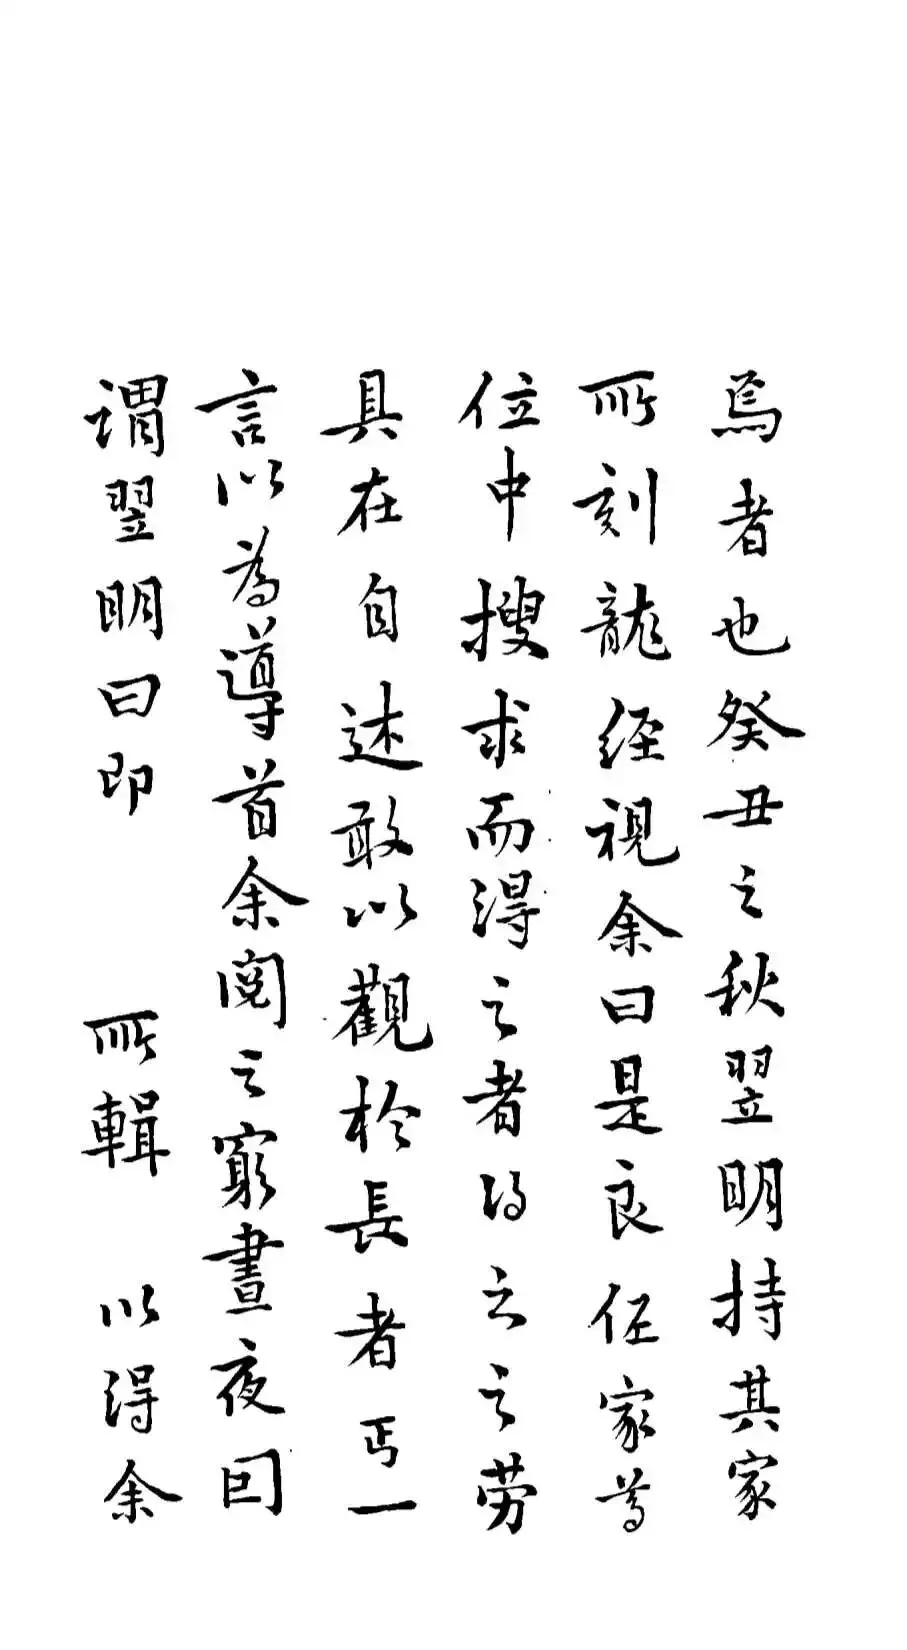 焉者也癸丑之秋翌明持其家
所刻龍經視余曰是良任家尊
位中搜求而得之者得之之勞
具在自述敢以觀於長者丐一
言以為導首余閱之窮晝夜因
謂翌明曰即所輯以得余